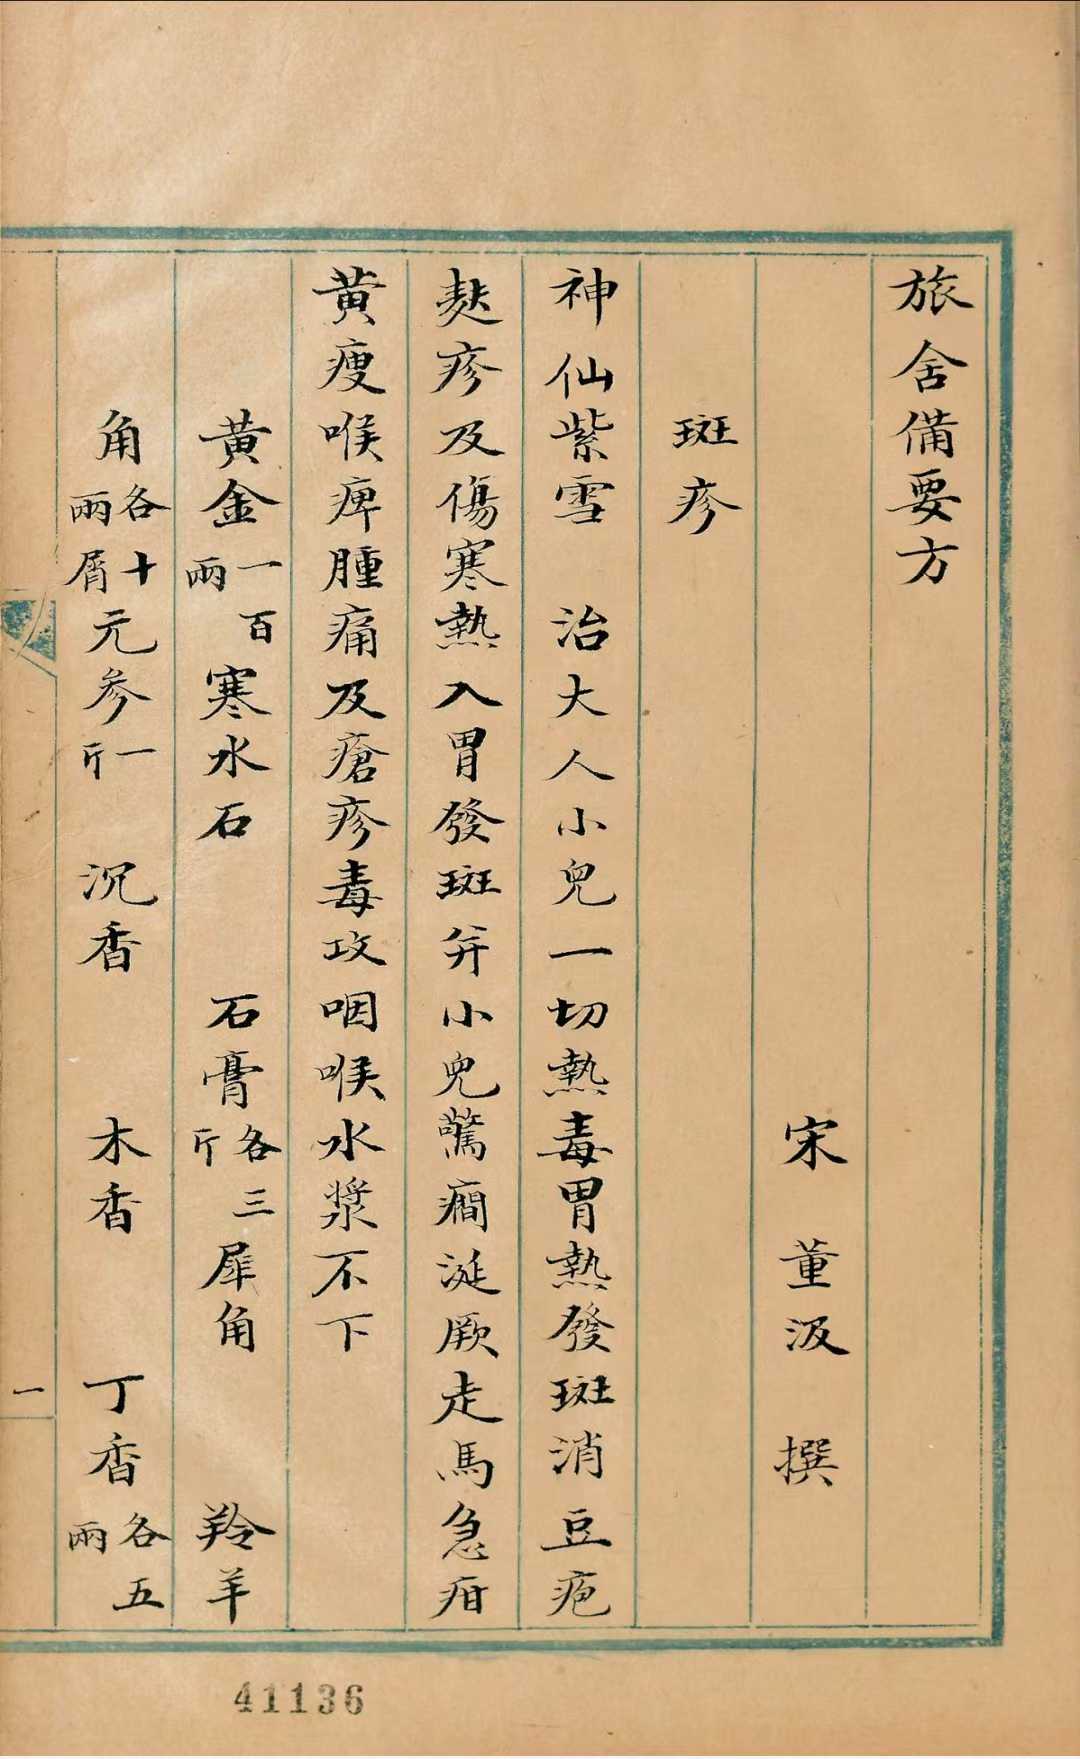 旅舍備要方
宋 董汲 撰
斑疹
神仙紫雪 治大人小兒一切熱毒胃熱發斑消豆疱
麩疹及傷寒熱入胃發斑并小兒驚癇涎厥走馬急疳
黃瘦喉痺腫痛及瘡疹毒攻咽喉水漿不下
黃金一百兩 寒水石 石膏各三斤 犀角 羚羊
角各十兩屑 元參一斤 沉香 木香 丁香各五兩
一
41136